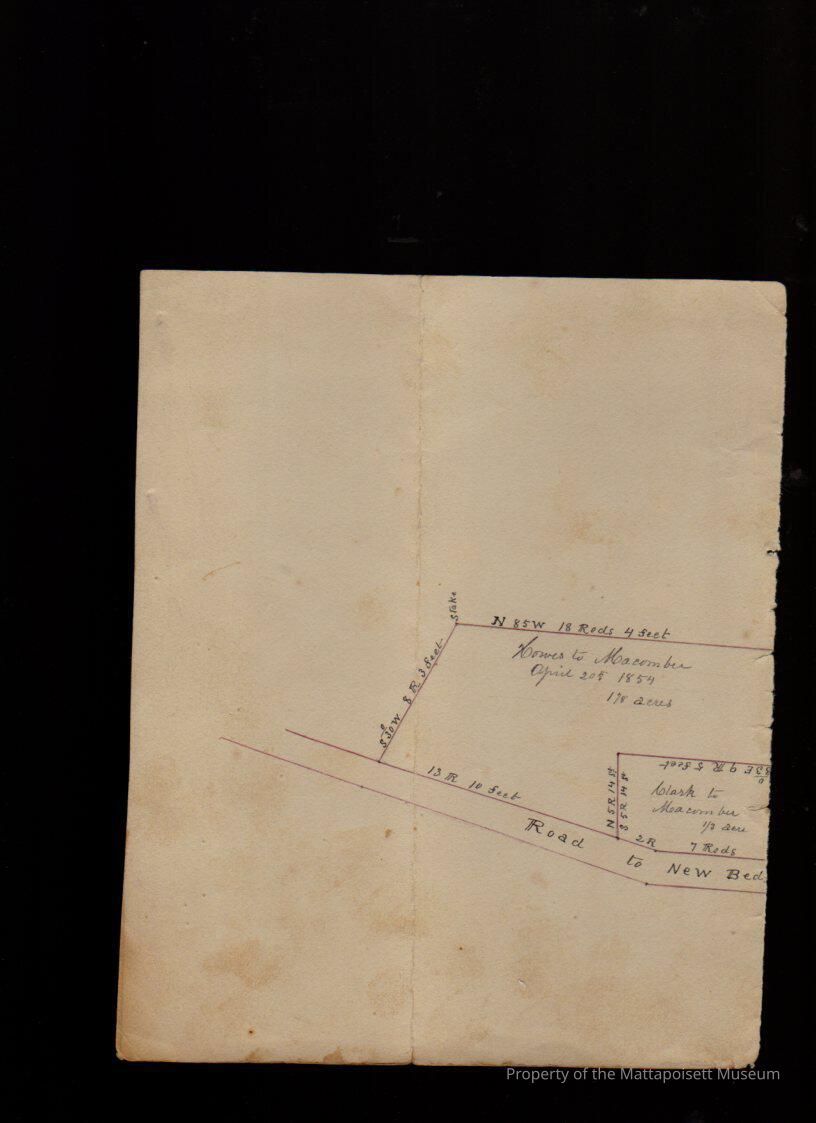 Stake
N 85 W 18 Rods 4 feet
S 30 W 8 R 3 feet
Howes to Macomber
April 20th 1854
1 7/8 acres
S 85 E 9 R 5 feet
N 5 R 14 ft
S 5 R 14 ft
Clark to
Macomber
1/3 acre
13 R 10 feet
2 R
7 Rods
Road to New Bed
Property of the Mattapoisett Museum